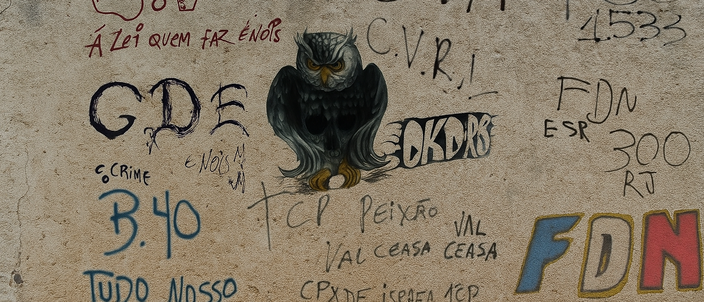 Á LEI QUEM FAZ É NÓIS
C.V.R.L
1.533
GDE
É NÓIS
O CRIME
DKDRS
FDN
ESR
300
RJ
B.40
TCP PEIXÃO
VAL CEASA
VAL CEASA
FDN
TUDO NOSSO
CPX DE ISRAEL TCP